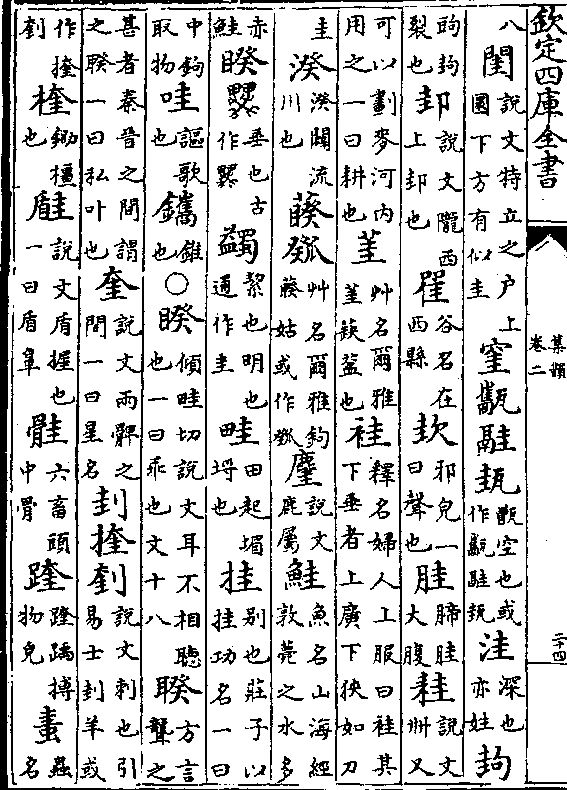 欽定四庫全書 集韻 卷二 二十四
八閨說文特立之户上圜下方有似圭窐甑空也或作洼深也亦姓
裂也邽說文隴西上邽也谷名在西縣邪皃一曰聲也胿腣胿大腹䅅說文𠕀又
可以劃麥河内用之一曰耕也茥艸名爾雅茥蒛盆也袿釋名婦人上服曰袿其下垂者上廣下狹如刀
圭湀湀闢流川也藈㼌艸名爾雅鉤藈姑或作㼌說文鹿屬鮭魚名山海經敦薨之水多
赤鮭垂也古作蠲絜也明也通作圭畦田起堳埒也挂别也莊子以挂功名一曰
中鉤取物哇謳歌也鑴錐也○睽傾畦切說文耳不相聽也一曰乖也文十八聧方言聾之
甚者秦晉之間謂之聧一曰私叶也奎說文兩髀之間一曰星名刲㨒說文刺也引易士刲羊或
作㨒楏鋤欘也𥍋說文盾握也一曰盾䯓六畜頭中骨踽搏物皃蟲名